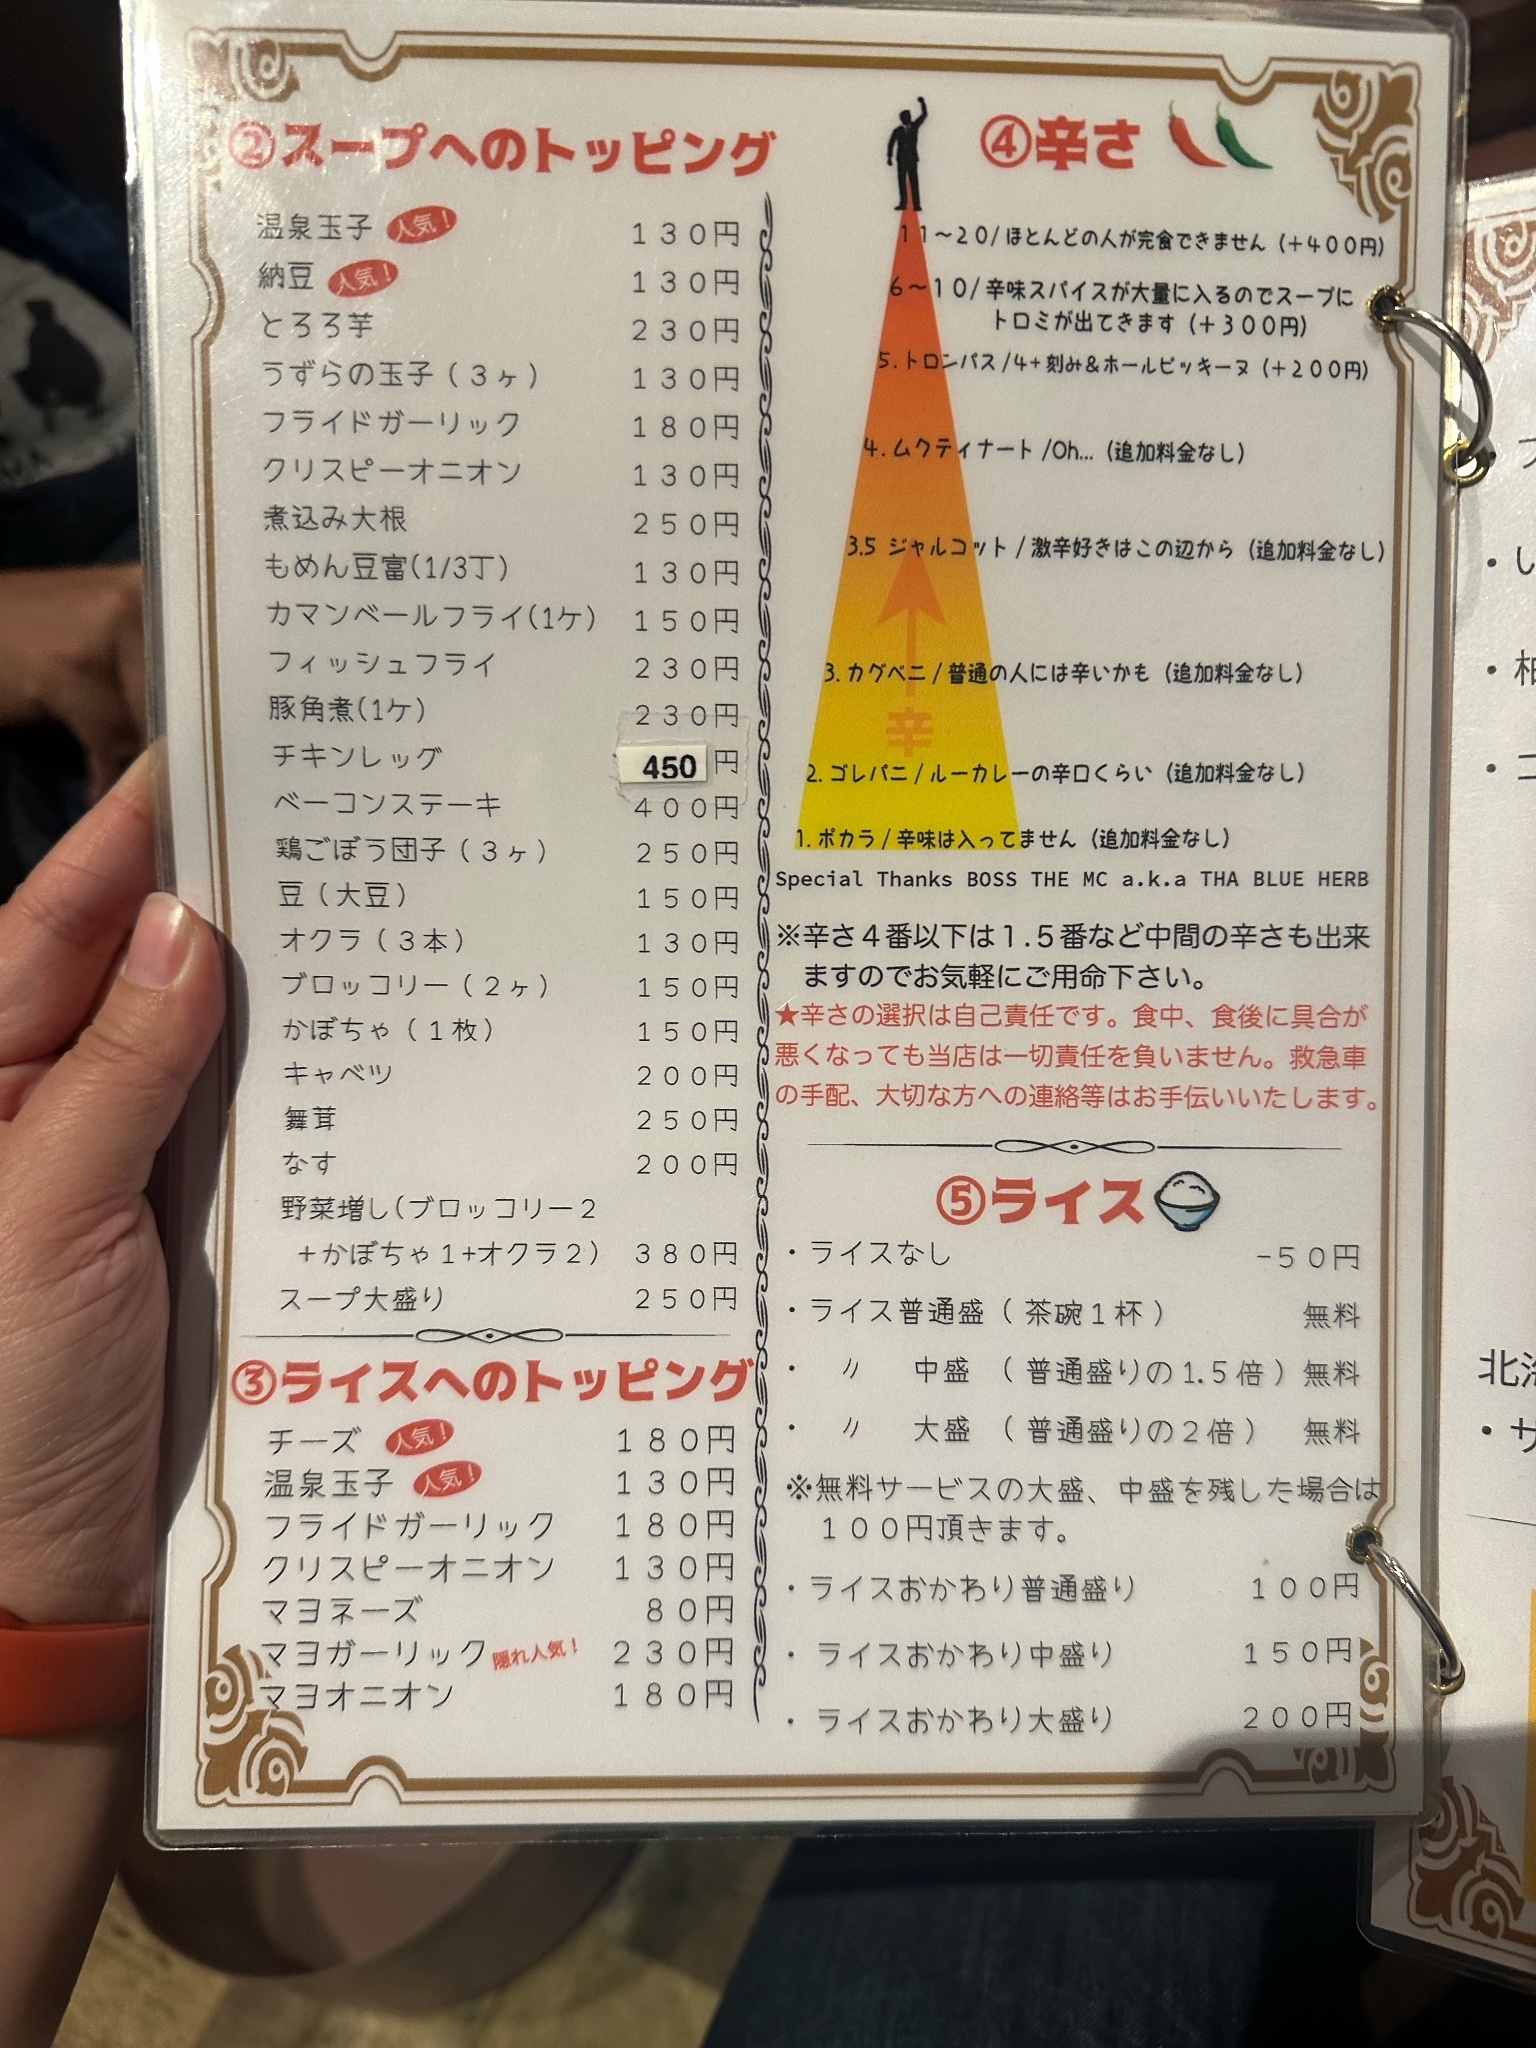 ②スープへのトッピング
温泉玉子 人気! 130円
納豆 人気! 130円
とろろ芋 230円
うずらの玉子(3ヶ) 130円
フライドガーリック 180円
クリスピーオニオン 130円
煮込み大根 250円
もめん豆富(1/3丁) 130円
カマンベールフライ(1ケ) 150円
フィッシュフライ 230円
豚角煮(1ケ) 230円
チキンレッグ 450円
ベーコンステーキ 400円
鶏ごぼう団子(3ヶ) 250円
豆(大豆) 150円
オクラ(3本) 130円
ブロッコリー(2ヶ) 150円
かぼちゃ(1枚) 150円
キャベツ 200円
舞茸 250円
なす 200円
野菜増し(ブロッコリー2
+かぼちゃ1+オクラ2) 380円
スープ大盛り 250円
③ライスへのトッピング
チーズ 人気! 180円
温泉玉子 人気! 130円
フライドガーリック 180円
クリスピーオニオン 130円
マヨネーズ 80円
マヨガーリック 隠れ人気! 230円
マヨオニオン 180円
④辛さ
11〜20/ほとんどの人が完食できません (+400円)
6〜10/辛味スパイスが大量に入るのでスープに
トロミが出てきます (+300円)
5. トロンパス/4+刻み&ホールピッキーヌ (+200円)
4. ムクティナート/Oh... (追加料金なし)
3.5 ジャルコット/激辛好きはこの辺から (追加料金なし)
3. カグベニ/普通の人には辛いかも (追加料金なし)
辛
2. ゴレパニ/ルーカレーの辛口くらい (追加料金なし)
1. ポカラ/辛味は入ってません (追加料金なし)
Special Thanks BOSS THE MC a.k.a THA BLUE HERB
※辛さ4番以下は1.5番など中間の辛さも出来
ますのでお気軽にご用命下さい。
★辛さの選択は自己責任です。食中、食後に具合が
悪くなっても当店は一切責任を負いません。救急車
の手配、大切な方への連絡等はお手伝いいたします。
⑤ライス
・ライスなし -50円
・ライス普通盛(茶碗1杯) 無料
・〃 中盛 (普通盛りの1.5倍) 無料
・〃 大盛 (普通盛りの2倍) 無料
※無料サービスの大盛、中盛を残した場合は
100円頂きます。
・ライスおかわり普通盛り 100円
・ライスおかわり中盛り 150円
・ライスおかわり大盛り 200円